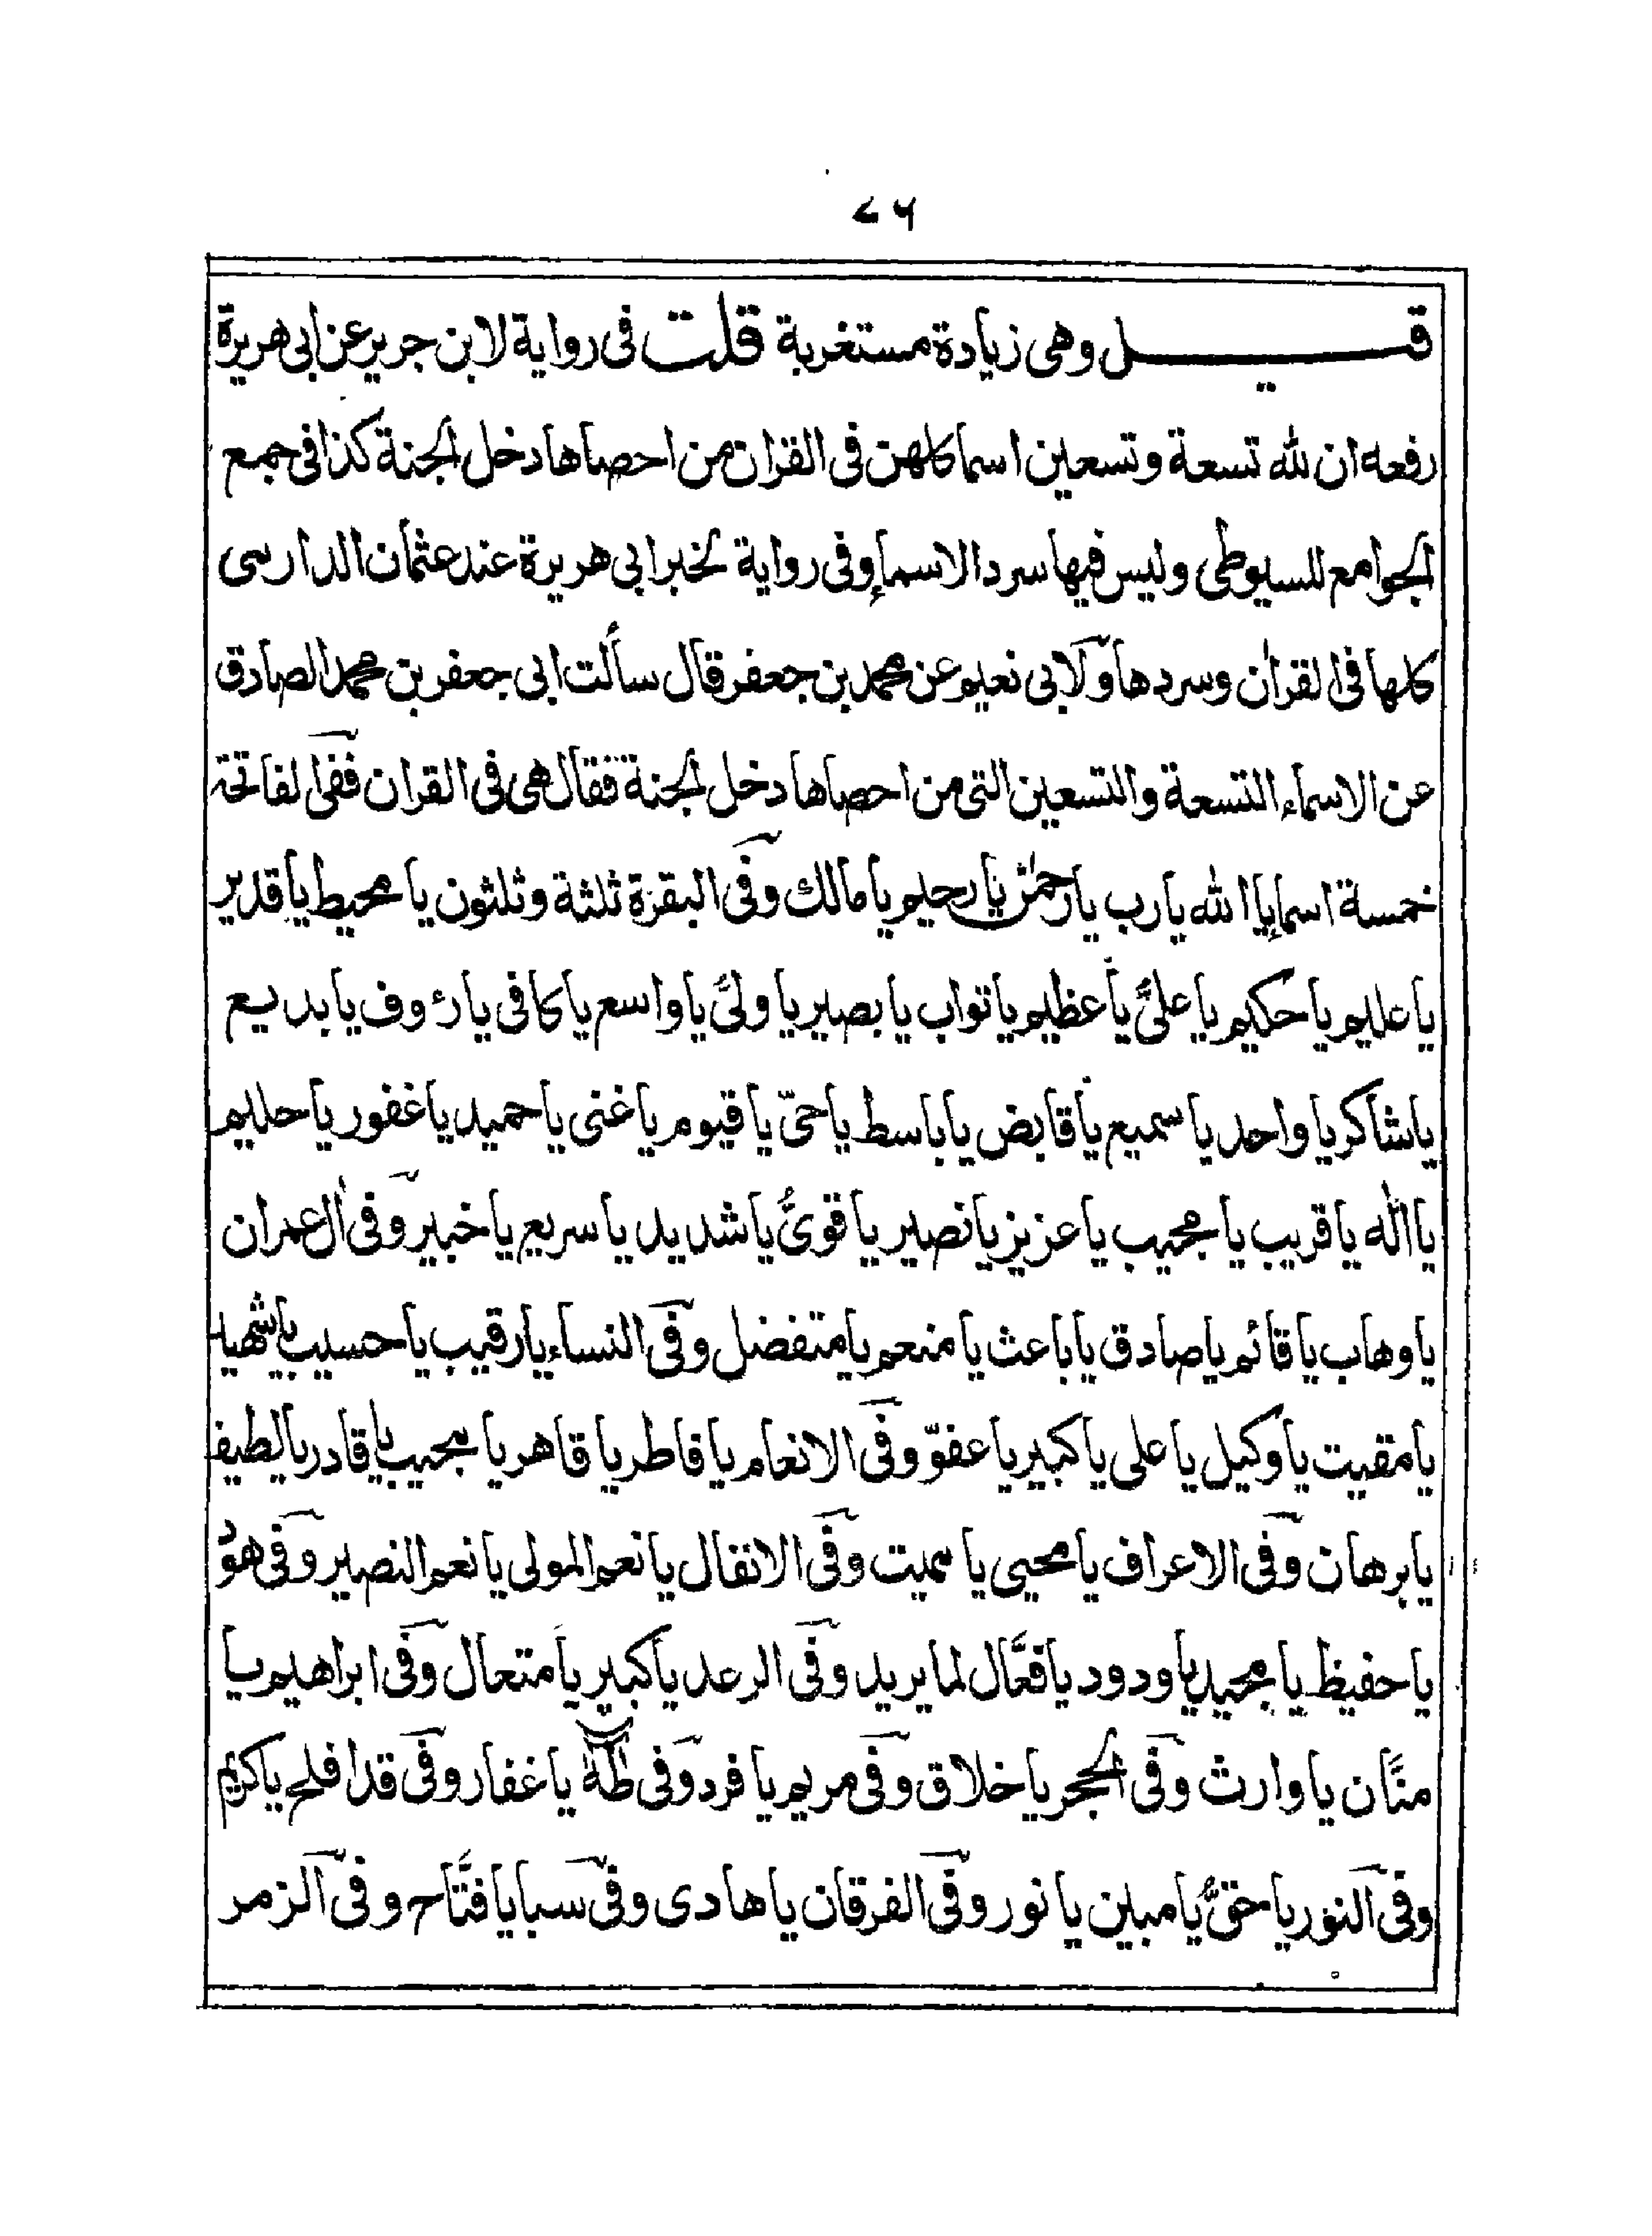 ۷۶
قيل وهى زيادة مستغربة قلت فى رواية لابن جرير عن ابى هريرة
رفعه ان لله تسعة وتسعين اسما كلهن فى القران من احصاها دخل الجنة كذا فى جمع
الجوامع للسيوطى وليس فيها سرد الاسماء وفى رواية لخبر ابى هريرة عند عثمان الدارسى
كلها فى القرأن وسردها ولابى نعيم عن محمد بن جعفر قال سألت ابى جعفر بن محمد الصادق
عن الاسماء التسعة والتسعين التى من احصاها دخل الجنة فقال هى فى القران ففى الفاتحة
خمسة اسماء يا الله يا رب يا رحمٰن يا رحيم يا مالك وفى البقرة ثلثة وثلثون يا محيط يا قدير
يا عليم يا حكيم يا علىُّ يا عظيم يا تواب يا بصير يا ولىُّ يا واسع يا كافى يا رءوف يا بديع
يا شاكر يا واحد يا سميع يا قابض يا باسط يا حىّ يا قيوم يا غنى يا حميد يا غفور يا حليم
يا الٰه يا قريب يا مجيب يا عزيز يا نصير يا قوىُّ يا شديد يا سريع يا خبير وفى اٰل عمران
يا وهاب يا قائم يا صادق يا باعث يا منعم يا متفضل وفى النساء يا رقيب يا حسيب يا شهيد
يا مقيت يا وكيل يا على يا كبير يا عفوّ وفى الانعام يا فاطر يا قاهر يا مجيب يا قادر يا لطيف
يا برهان وفى الاعراف يا محيى يا مميت وفى الانفال يا نعم المولى يا نعم النصير وفى هود
يا حفيظ يا مجيد يا ودود يا فعَّال لما يريد وفى الرعد يا كبير يا متعال وفى ابراهيم يا
منَّان يا وارث وفى الحجر يا خلاق وفى مريم يا فرد وفى طٰهٰ يا غفار وفى قد افلح يا كريم
وفى النور يا حقُّ يا مبين يا نور وفى الفرقان يا هادى وفى سبا يا فتَّاح وفى الزمر